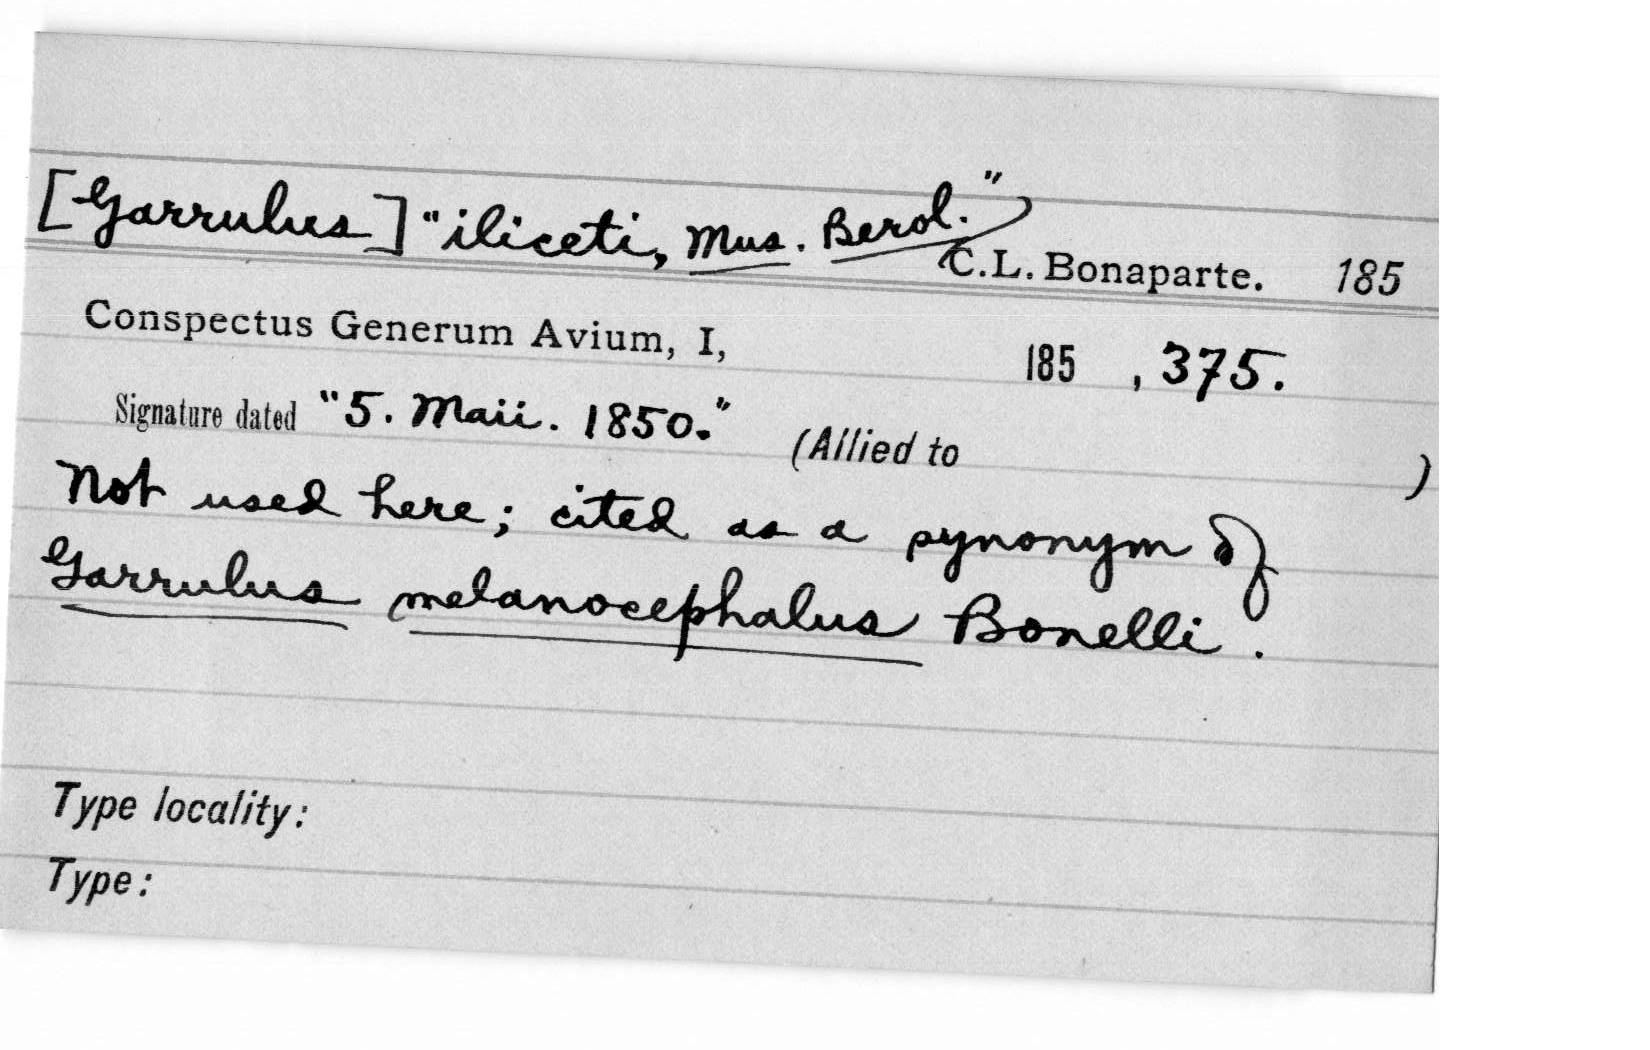 [Garrulus] "iliceti, Mus. Berol."
C.L. Bonaparte. 185
Conspectus Generum Avium, I, 185 , 375.
Signature dated "5. Maii. 1850." (Allied to )
Not used here; cited as a synonym of
Garrulus melanocephalus Bonelli.
Type locality:
Type: